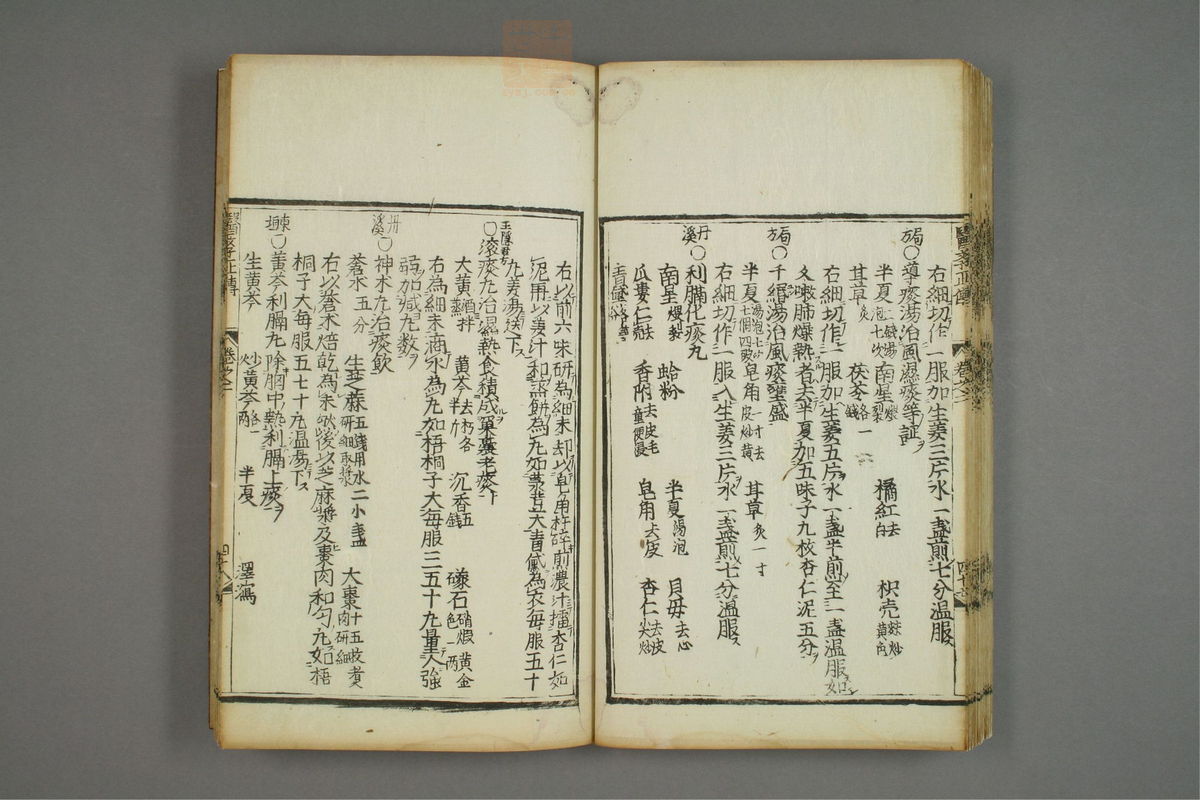 右細切作一服加生姜三片水一盞煎七分温服
局方○導痰湯治風濕痰等証
半夏二錢湯泡七次 南星 橘紅去白 枳壳麸炒黄
甘草炙 茯苓各一錢
右細切作一服加生姜五片水一盞半煎至一盞温服如
久嗽肺燥熱者去半夏加五味子九枚杏仁泥五分
局方○千緡湯治風痰壅盛
半夏湯泡七次七個四破 皂角一寸去皮炒黄 甘草炙一寸
右細切作一服入生姜三片水一盞煎七分温服
丹溪○利膈化痰丸
南星煨製 蛤粉 半夏湯泡 貝母去心
瓜蔞仁去壳 香附去皮毛童便浸 皂角去皮 杏仁去皮尖炒
青黛
右以前六味研為細末却以皂角杵碎煎濃汁擂杏仁如
泥再以姜汁和蒸餅為丸如菉豆大青黛為衣毎服五十
丸姜湯送下
王隱君方○滚痰丸治濕熱食積成窠囊老痰
大黄酒拌蒸 黄芩去朽各半斤 沉香五錢 礞石硝煅黄金色一兩
右為細末滴水為丸如梧桐子大毎服三五十丸量人強
弱加减丸数
丹溪○神术丸治痰飲
蒼术五分 生芝麻五錢用水二小盞研細取漿 大棗十五枚煮肉研細
右以蒼术焙乾為末然後以芝麻漿及棗肉和匀丸如梧
桐子大毎服五七十丸温湯下
東垣○黄芩利膈丸除胸中熱利膈上痰
生黄芩 炒黄芩各一兩 半夏 澤瀉